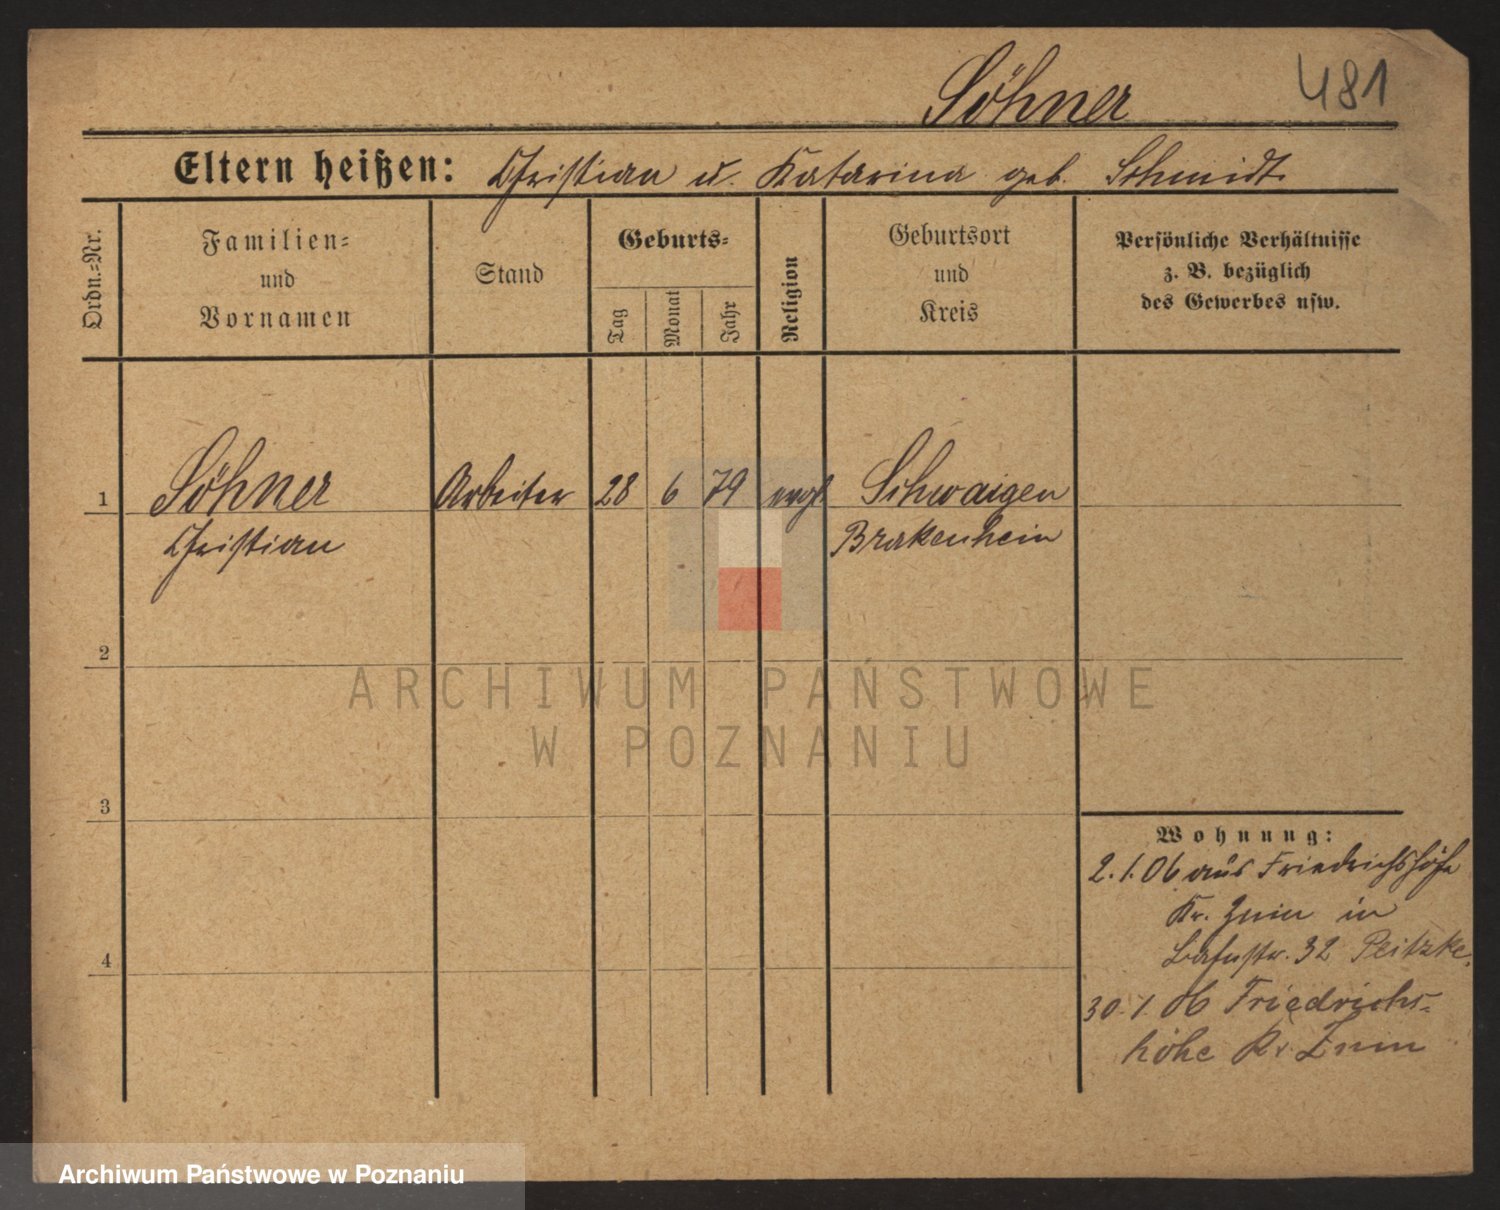 Söhner 481
Eltern heißen: Christian u. Katarina geb. Schmidt
Ordn.=Nr.
Familien=
und
Vornamen
Stand
Geburts=
Tag
Monat
Jahr
Religion
Geburtsort
und
Kreis
Persönliche Verhältnisse
z. B. bezüglich
des Gewerbes usw.
1 Söhner Arbeiter 28 6 79 evgl Schwaigen
Christian Brakenhein
2
3
4
Wohnung:
2.1.06 aus Friedrichshöhe
Kr. Znin in
Bahnstr. 32 Peitzke.
30.1.06 Friedrichs=
höhe Kr. Znin
ARCHIWUM PAŃSTWOWE
W POZNANIU
Archiwum Państwowe w Poznaniu